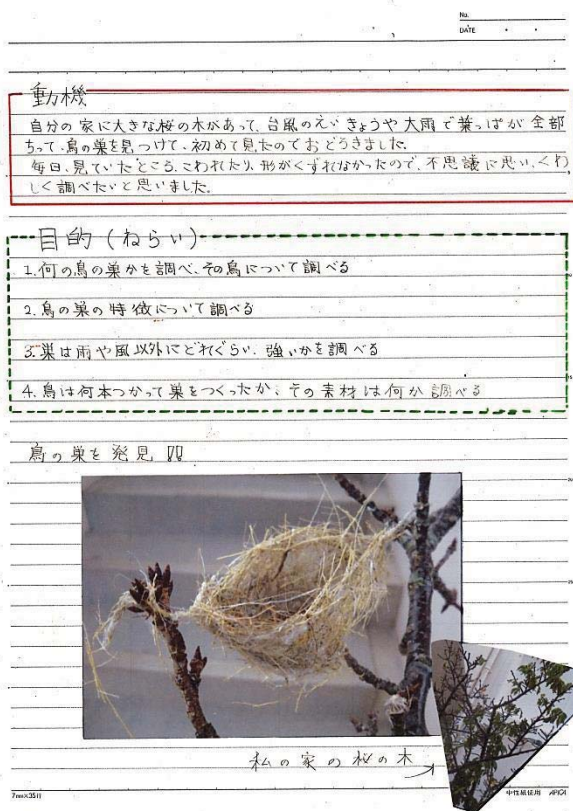 No.
DATE
動機
自分の家に大きな桜の木があって、台風のえいきょうや大雨で葉っぱが全部
ちって、鳥の巣を見つけて、初めて見たのでおどろきました。
毎日、見ていたところ、こわれたり、形がくずれなかったので、不思議に思い、くわ
しく調べたいと思いました。
目的(ねらい)
1.何の鳥の巣かを調べ、その鳥について調べる
2.鳥の巣の特徴について調べる
3.巣は雨や風以外にどれぐらい、強いかを調べる
4.鳥は何本つかって巣をつくったか、その素材は何か調べる
鳥の巣を発見!!
私の家の桜の木
7mm×35行
中性紙使用 APICA